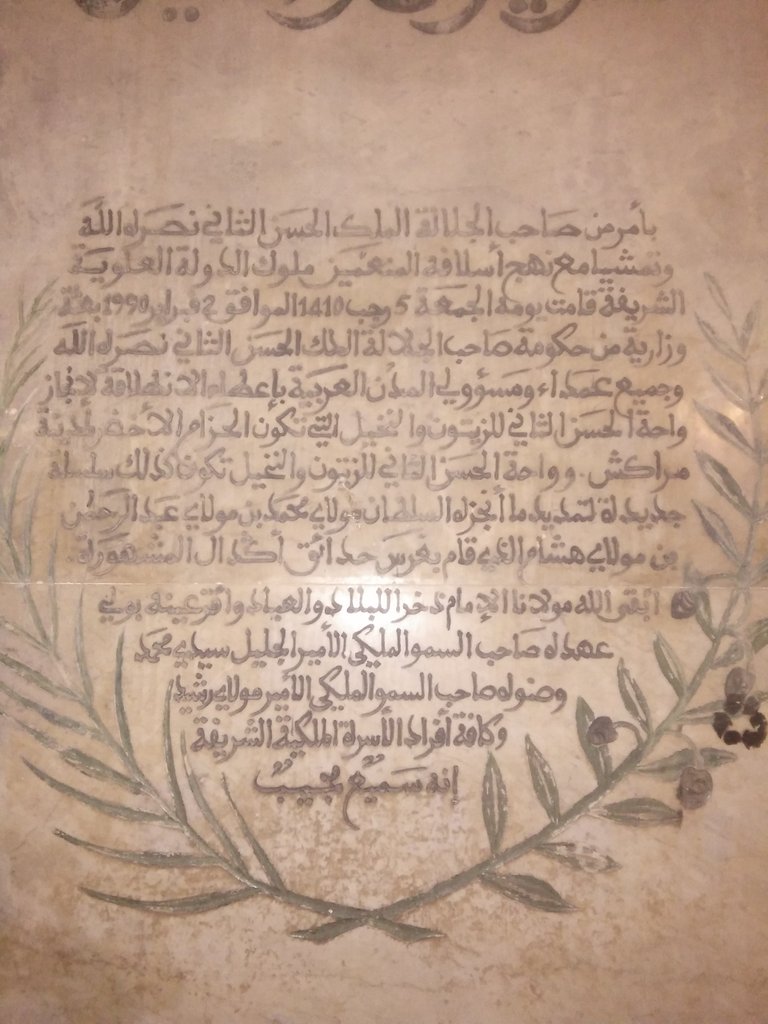 بأمر من صاحب الجلالة الملك الحسن الثاني نصره الله
وتمشيا مع نهج أسلافه المنعمين ملوك الدولة العلوية
الشريفة قامت يومه الجمعة 5 رجب 1410 الموافق 2 فبراير 1990 بعثة
وزارية من حكومة صاحب الجلالة الملك الحسن الثاني نصره الله
وجميع عمداء ومسؤولي المدن العربية بإعطاء الانطلاقة لإنجاز
واحة الحسن الثاني للزيتون والنخيل التي تكون الحزام الأخضر لمدينة
مراكش . وواحة الحسن الثاني للزيتون والنخيل تكون كذلك سلسلة
جديدة لتمديد ما أنجزه السلطان مولاي محمد بن مولاي عبد الرحمان
بن مولاي هشام الذي قام بغرس حدائق أكدال المشهورة.
ابقى الله مولانا الإمام ذخرا للبلاد والعباد واقر عينه بولي
عهده صاحب السمو الملكي الأمير الجليل سيدي محمد
وصنوه صاحب السمو الملكي الأمير مولاي رشيد
وكافة أفراد الأسرة الملكية الشريفة
إنه سميع مجيب